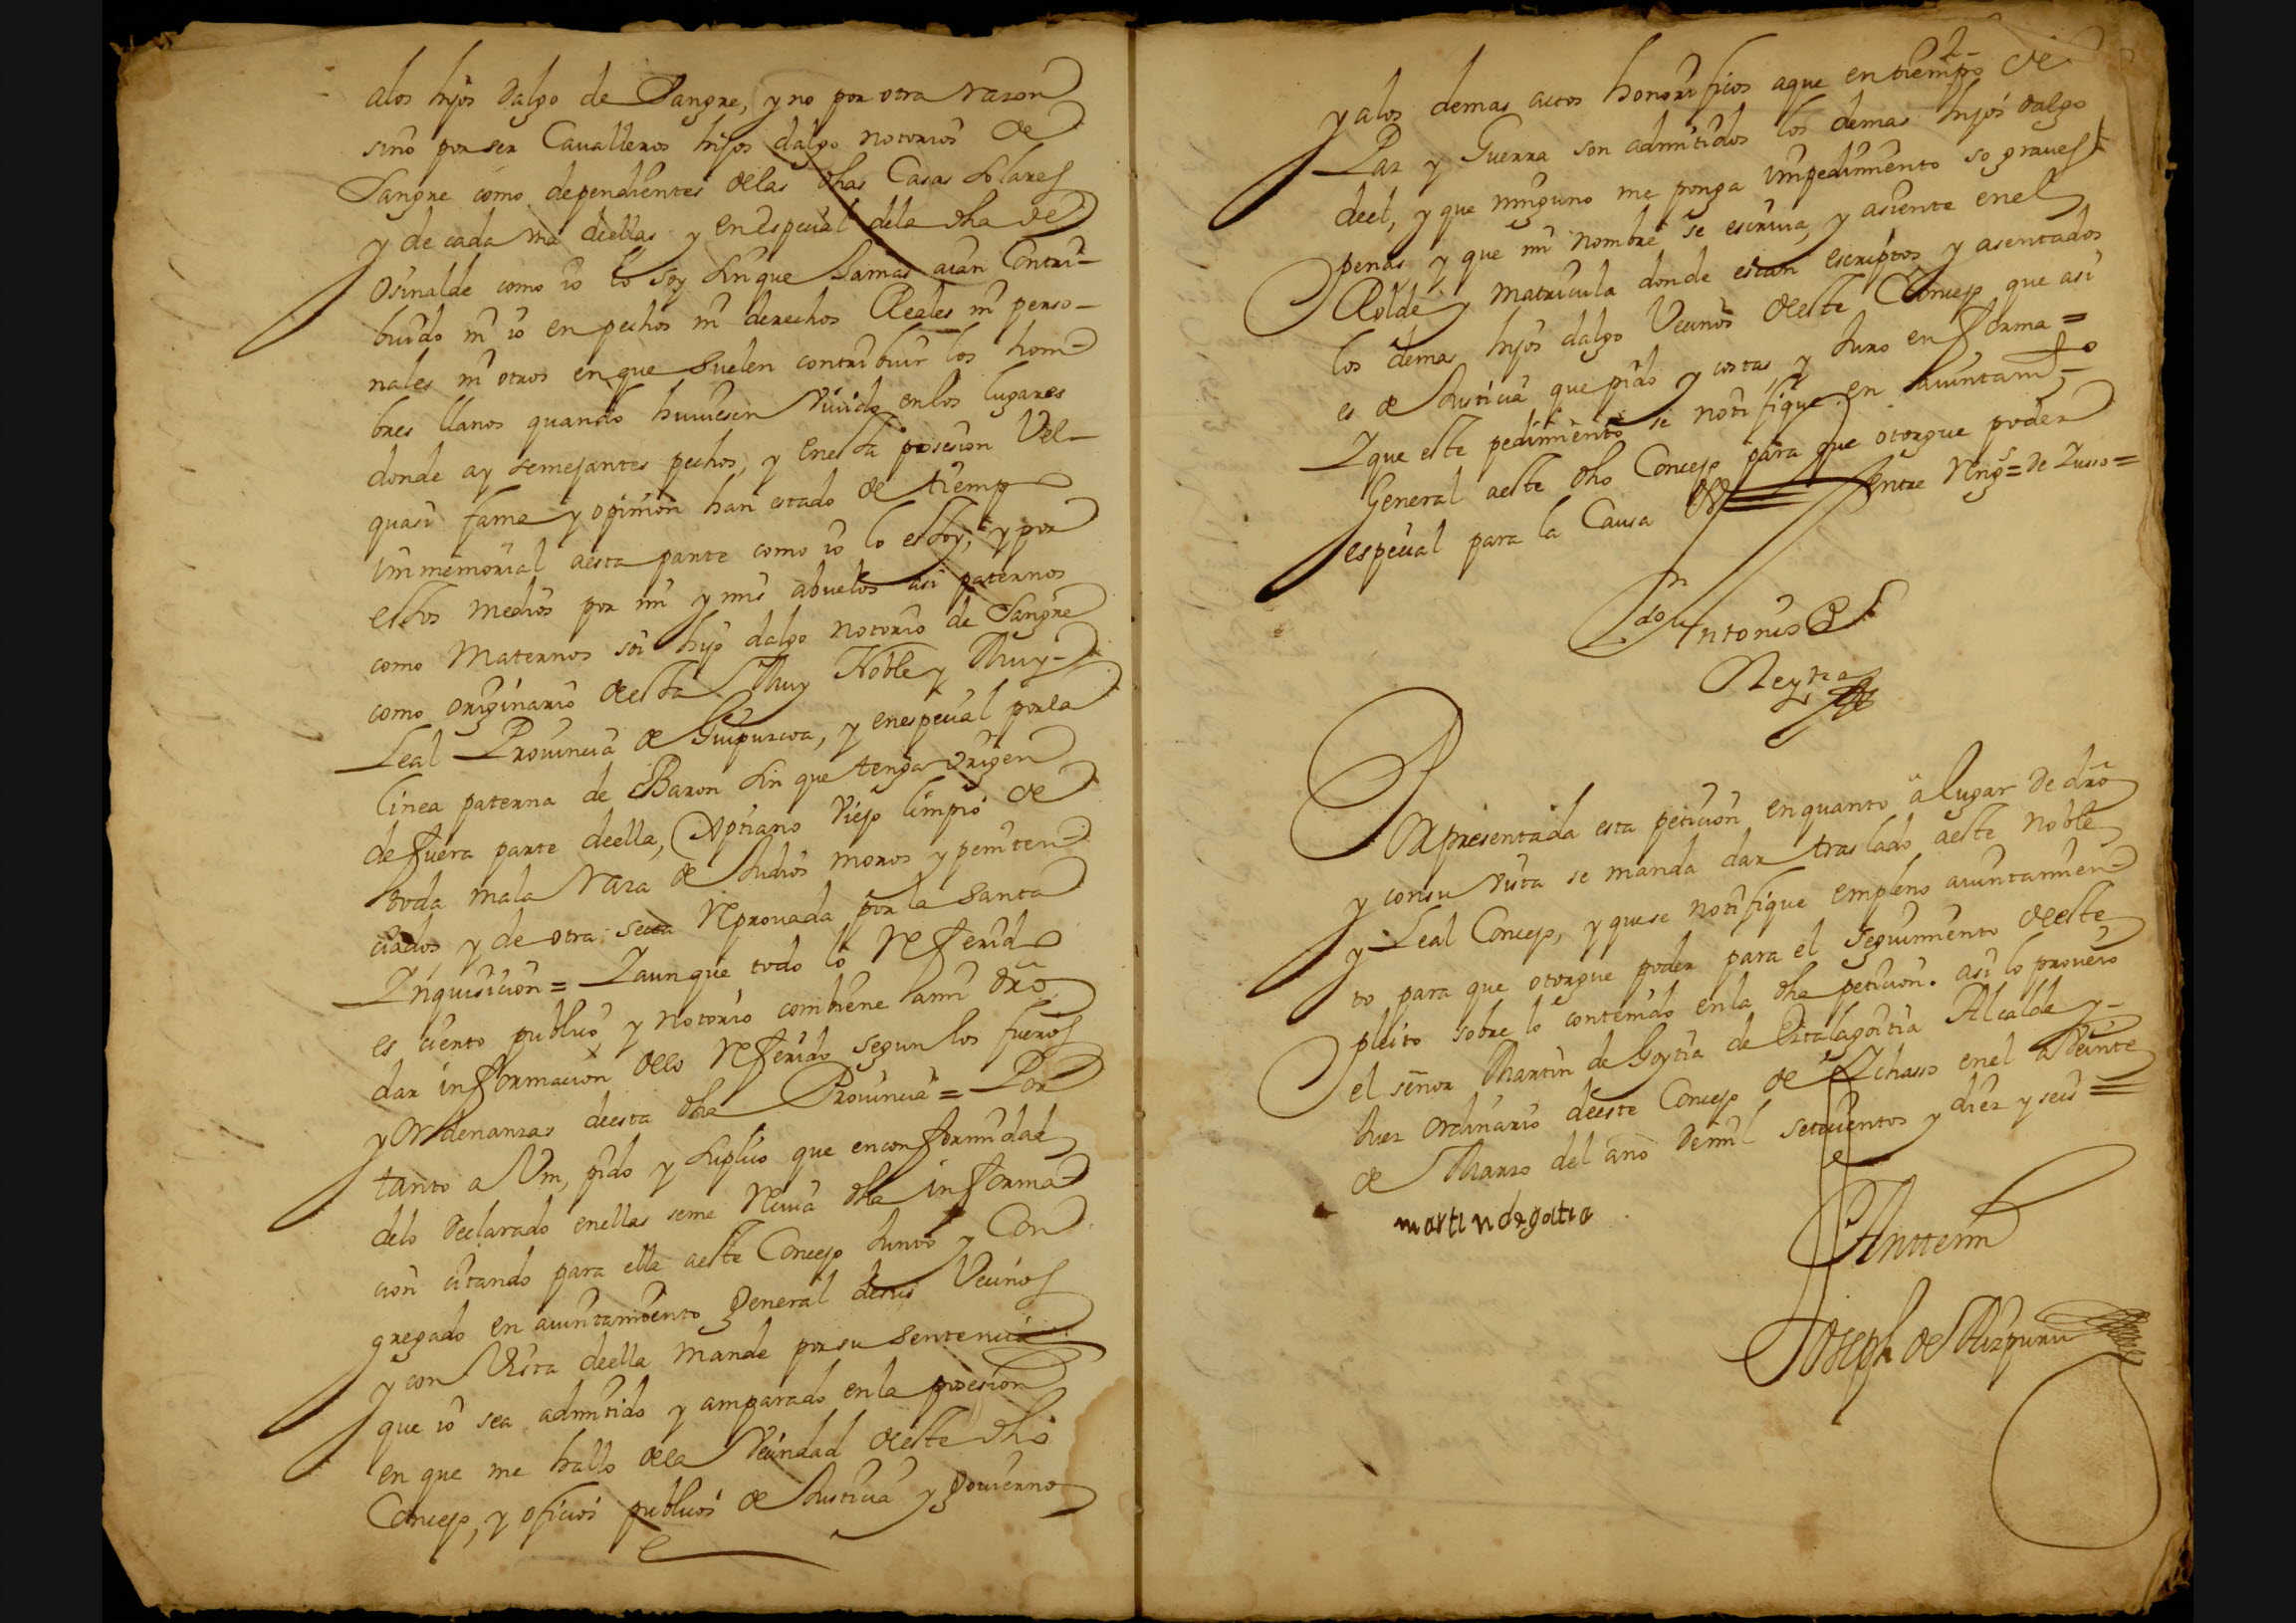 alos hijos dalgo de Sangre, y no por otra razon
sino por ser Caualleros hijos dalgo notorios de
Sangre como dependientes delas dhas Casas Solares
y de cada vna deellas y en especial dela dha de
Osinalde como io lo soy sin que Jamas aian Contri-
buido ni io en pechos ni derechos Reales ni perso-
nales ni otros en que suelen contribuir los hom-
bres llanos quando huuiesen viuido en los lugares
donde ay semejantes pechos, y en esta posesion Vel-
quasi fama y opinion han estado de tiempo
immemorial aesta parte como io lo estoy, y por
estos medios por mi y mis abuelos asi paternos
como Maternos soi hijo dalgo notorio de Sangre
como originario deesta Muy Noble y Muy-
Leal Prouincia de Guipuzcoa, y en especial por la
linea paterna de Baron sin que tenga origen
de fuera parte deella, Xptiano viejo limpio de
toda mala raza de Judios moros y peniten-
ciados y de otra secta reprouada por la Santa
Inquisicion = Y aunque todo lo referido
es cierto publico y notorio combiene ami dro
dar informacion delo referido segun los fueros
y Ordenanzas deesta dha Prouincia = Por
tanto a Vm, pido y suplico que en conformidad
delo declarado en ellas se me reciua dha informa-
cion citando para ella aeste Concejo Junto y Con
gregado en aiuntamiento general desus Vecinos
y con Vista deella mande por su sentencia
que io sea admitido y amparado en la posesion
en que me hallo dela Vecindad deeste dho
Concejo, y oficios publicos de Justicia y Gouierno
2
y alos demas actos honorificos a que en tiempo de
Paz y Guerra son admitidos los demas hijos dalgo
deel, y que ninguno me ponga impedimento so graues
penas y que mi nombre se escriua, y asiente en el
Rolde y Matricula donde estan escriptos y asentados
los demas hijos dalgo Vecinos deeste Concejo que asi
es de Justicia que pido y costas y Juro en forma =
Y que este pedimiento se notifique en aiuntam.to
General aeste dho Concejo para que otorgue poder
especial para la Causa entre reng.s = de Zusso =
Antonio
Reyna
Por presentada esta peticion en quanto a lugar de dro
y con su vista se manda dar traslado aeste noble
y Leal Concejo, y que se notifique em pleno aiuntamien-
to para que otorgue poder para el seguimiento deeste
pleito sobre lo contenido en la dha peticion. asi lo proueio
el señor Martin de Goytia de Alcalde y-
Juez Ordinario deeste Concejo de Ichasso en el a Veinte
de Marzo del año de mil setecientos y diez y seis =
martin de goitia
Ante mi
Joseph de Aizpuru